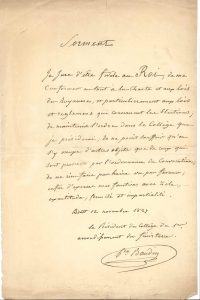 Serment
Je Jure d'être fidèle au Roi, de me
Conformer en tout à la Charte et aux lois
du Royaume, et particulièrement aux lois
et règlements qui concernent les Elections,
de maintenir l'ordre dans le Collège que
je présiderai, de ne point souffrir qu'on
s'y occupe d'autres objets que de ceux qui
sont prescrits par l'ordonnance de Convocation,
de ne rien faire
enfin d'exercer mes fonctions avec zèle,
exactitude, fermeté et impartialité.
Brest 12 novembre 1827
Le Président du Collège du
arrondissement du finistère
Baudin